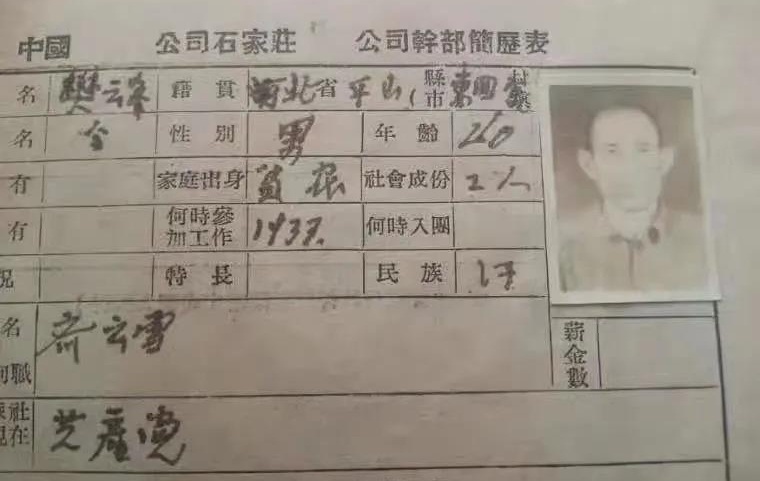 中國 公司石家莊 公司幹部簡歷表
名 樊云峯 籍貫 河北省平山(縣市東回 村
名 仝 性別 男 年齡
有 家庭出身 貧農 社會成份 工人
有 何時參加工作 1937. 何時入團
況 特長 民族 汉
名 齐云雪
何職 薪金數
社
現在 共產党